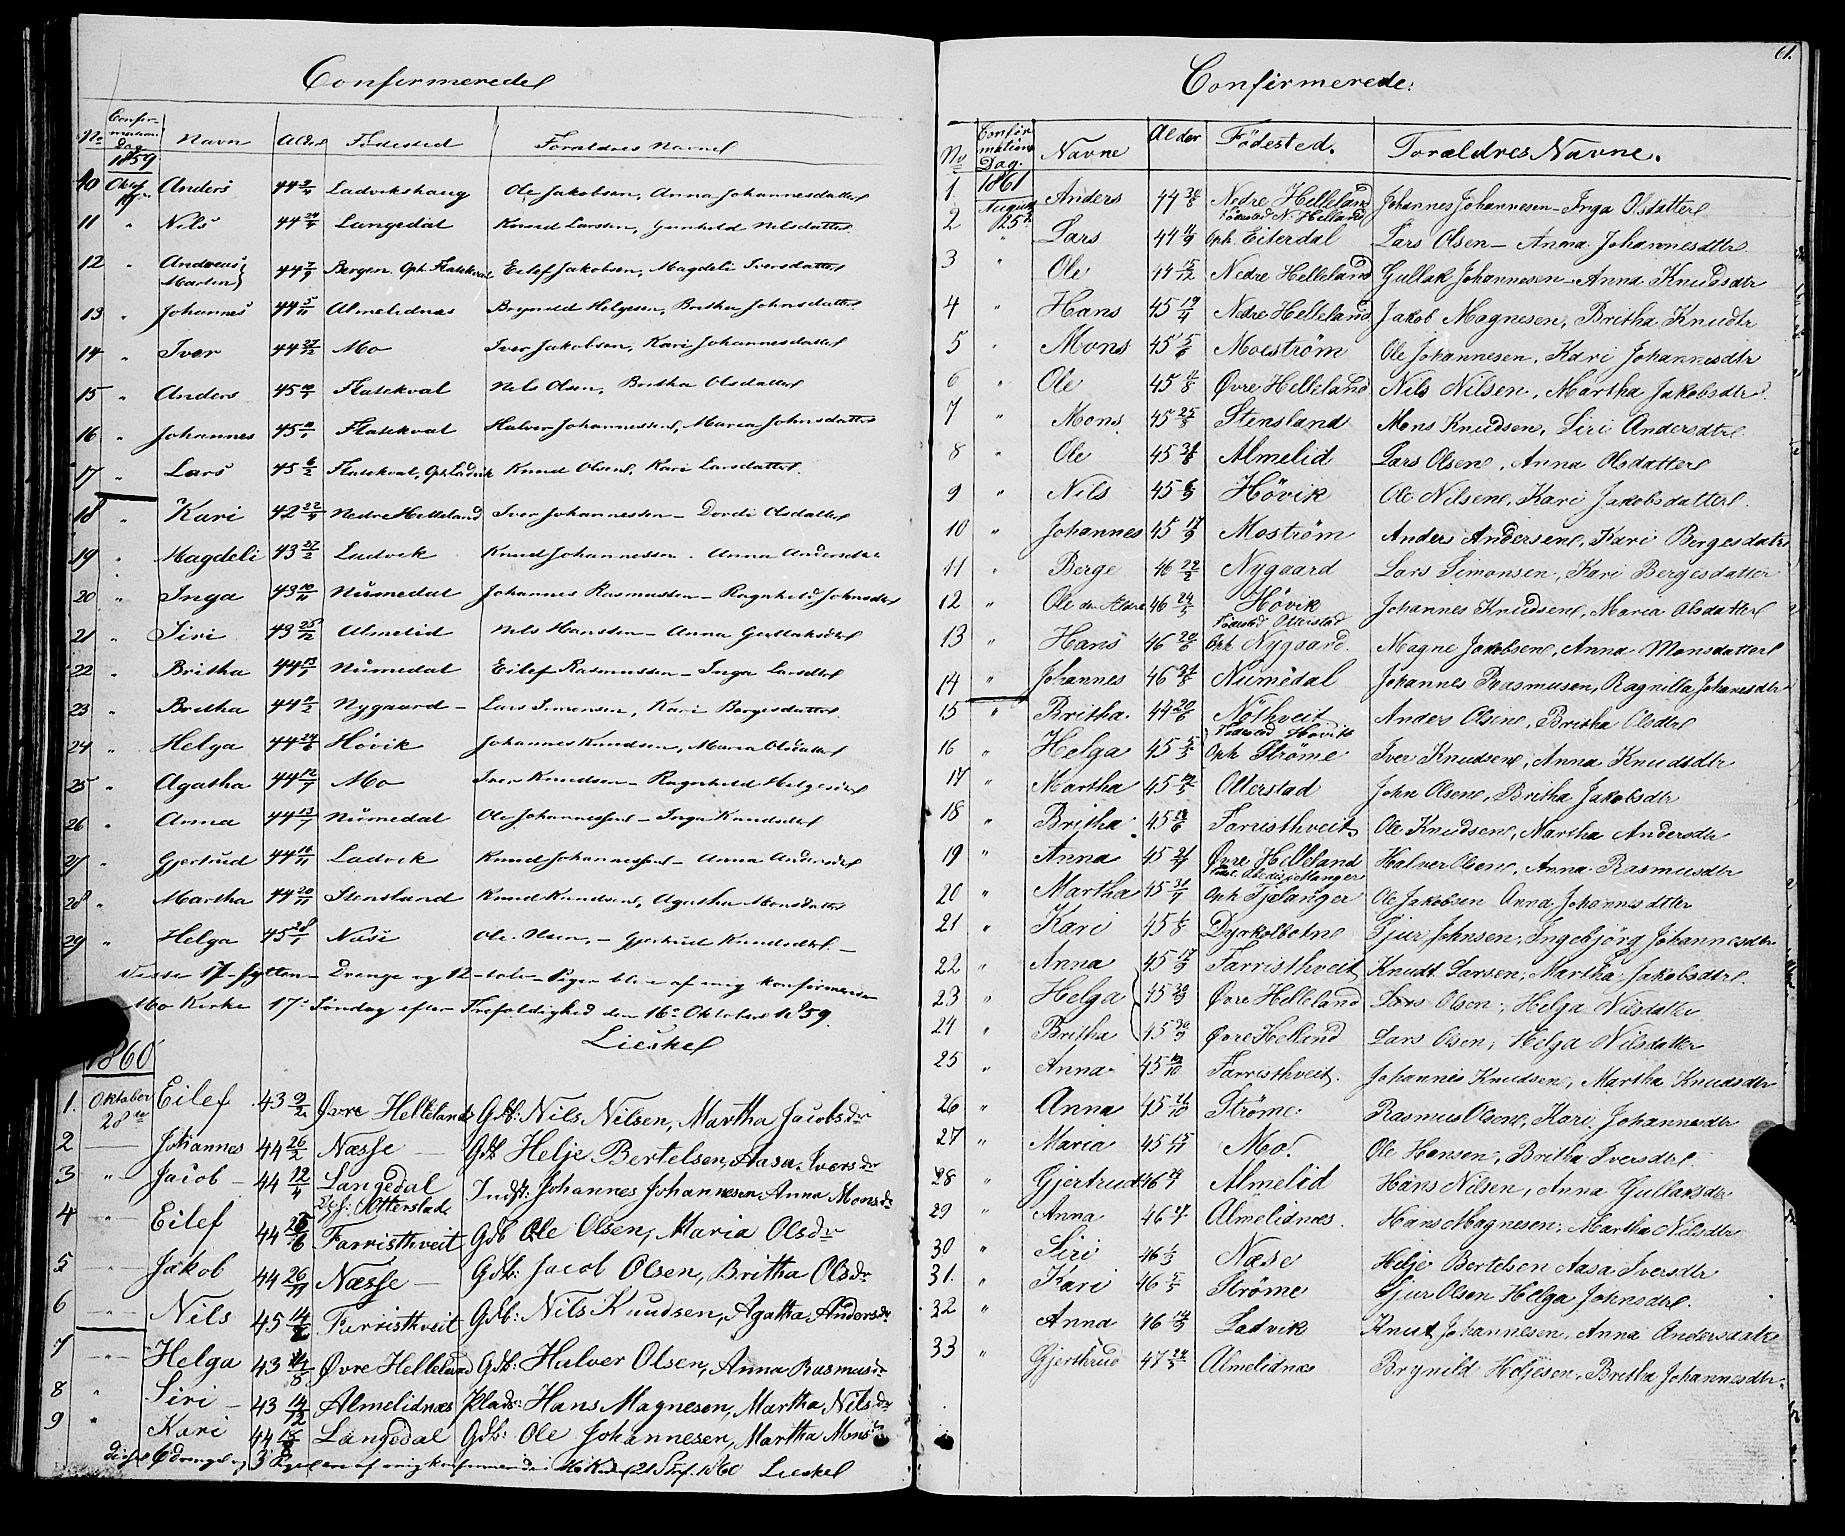 Confirmerede
No Confirmations Dag Navn Alder Fødested Forældres Navne
1859
10 Oktbr 16de Anders 44 Ladvikshaug Ole Jakobsen, Anna Johannesdatter
11 " Nils 44 24/ Langedal Knud Larssen, Gunhild Nilsdatter
12 " Andreas Martin 44 7/9 Bergen Oph. Flatekval Eilef Jakobsen, Magdeli Iversdatter
13 " Johannes 44 5/11 Almelidnæs Brynild Helgesen, Britha Johnsdatter
14 " Iver 44 27/12 Mo Iver Jakobsen, Kari Johannesdatter
15 " Anders 45 Flatekval Nels Olsen, Britha Olsdatter
16 " Johannes 45 Flatekval Halver Johannessen, Maria Johnsdatter
17 " Lars 45 6/2 Flatekval, Oph. Ladvik Knud Olsen, Kari Larsdatter
18 " Kari 42 22/ Nedre Helleland Iver Johannessen - Dordi Olsdatter
19 " Magdeli 43 27/2 Ladvik Knud Johannessen - Anna Andersdtr
20 " Inga 43 10/11 Nümedal Johannes Rasmussen - Ragnhild Johnsdtr
21 " Siri 43 25/12 Almelid Nils Hanssen - Anna Gullaksdtr
22 " Britha 44 13/1 Nümedal Eilef Rasmussen - Inga Larsdtr
23 " Britha 44 /2 Nygaard - Lars Simonsen, Kari Bergesdatter
24 " Helga 44 24/ Hövik Johannes Knudsen, Maria Olsdatter
25 " Agatha 44 12/7 Mo Iver Knudsen - Ragnhild Helgesdtr
26 " Anna 44 13/7 Nümedal Ole Johannessen - Inga Knudsdtr
27 " Gjertrud 44 /11 Ladvik Knud Johannessen - Anna Andersdtr
28 " Martha 44 20/11 Stensland Knud Knudsen, Agatha Monsdatter
29 " Helga 45 28/1 Næse Ole Olsen, - Gjertrud Knudsdtr. -
Disse 17 - sytten - Drenge og 12 - tolv - Piger bleve af mig konfirmerede
Mo Kirke 17de Søndag efter Trefoldighed den 16de Oktober 1859.
Lieskel
1860
1. Oktober 28de Eilef 43 9/2 Øvre Hellelands Gdb: Nils Nilsen, Martha Jacobsdr
2 Johannes 44 26/2 Næsse Gdb. Helje Bertelsen, Aasa Iversdr
3 " Jacob - 44 12/4 Langedal Indst: Johannes Johannesen, Anna Monsdr
Otterstad
4 " Eilef 44 25/6 Farristhveit Gdb Ole Olsen, Maria Olsdr
5 Jakob 44 26/11 Næsse - Gdb: Jacob Olsen, Britha Olsdr
6 " Nils 45 14/2 Farristhveit Gdb: Nils Knudsen, Agatha Andersdr
7 " Helga 43 /8 Øvre Helleland Gdb: Halver Olsen, Anna Rasmusdr
8 " Siri - 43 14/12 Almelidnæs Plads: Hans Magnesen, Martha Nilsdr
9 " Kari 44 18/8 Langedal Gdb: Ole Johannesen, Martha Monsdr
Disse 6 drenge og 3 Piger ere af mig konfirmerede i Mo Kirke 1860 Lieskel
61.
Confirmerede:
No Confirmations Dag. Navne Alder Fødested. Forældres Navne.
1861
1 August 25de Anders 44 Nedre Helleland Johannes Johannesen - Inga Olsdatter
Fødested N. Helland
2 " Lars 44 11/9 Oph. Eiterdal Lars Olsen - Anna Johannesdtr
3 " Ole 44 15/12 Nedre Helleland Gullak Johannesen - Anna Knudsdtr
4 " Hans 45 19/4 Nedre Helleland Jakob Magnesen, Britha Knudtr
5 " Mons 45 5/6 Moeström Ole Johannesen, Kari Johannesdtr
6 " Ole 45 /8 Øvre Helleland Nils Nilsen, Martha Jakobsdtr
7 " Mons 45 25/8 Stensland Mons Knudsen, Siri Andersdtr
8 " Ole 45 /8 Almelid Lars Olsen, Anna Olsdatter
9 " Nils 45 Hövik Ole Nilsen, Kari Jakobsdatter
10 " Johannes 45 17/9 Moström Anders Andersen, Kari Bergesdatr
11 " Berge 46 22/2 Nygaard Lars Simonsen, Kari Bergesdatter
12 " Ole den Ældre 46 24/ Hövik Johannes Knudsen, Maria Olsdatter
Fødested Otterstad
13 " Hans 46 20/6 Oph Nygaard. Magne Jakobsen, Anna Monsdatter
14 " Johannes 46 /8 Numedal Johannes Rasmusen, Ragnilla Johanesdtr
15 " Britha 44 20/6 Nöthveit Anders Olsen, Britha Olsdtr
Fødested Hövik
16 " Helga 45 5/3 Oph Ströme Iver Knudsen, Anna Knudsdtr
17 " Martha 45 Otterstad John Olsen, Britha Jakobsdtr
18 " Britha 45 /6 Farristhveit Ole Knudsen, Martha Andersdtr
19 " Anna 45 Øvre Helleland Halver Olsen, Anna Rasmusdtr
20 " Martha 45 Oph Tjelanger Ole Jakobsen Anna Johannesdtter
21 " Kari 45 Dyrkolbotne Sjur Johnsen, Ingebjörg Johannesdtr
22 " Anna 45 17/9 Farristhveit Knudt Larsen, Martha Jakobsdtr
23 " Helga 45 30/9 Øvre Helleland Lars Olsen, Helga Nilsdatter
24 " Britha 45 30/9 Øvre Hellend Lars Olsen, Helga Nilsdatter
25 " Anna 45 /10 Farristhveit. Johannes Knudsen, Martha Knudsdtr
26 " Anna 45 /10 Ströme Rasmus Olsen, Kari Johannesdtr
27 " Maria 45 /11 Mo. Ole Hansen, Britha Iversdtr
28 " Gjertrud 46 Almelid Hans Nilsen, Anna Gullaksdtr
29 " Anna 46 Almelidnæs. Hans Magnesen, Martha Nilsdtr
30 " Siri 46 Næse Helje Bertelsen Aasa Iversdtr
31. " Kari 46 Ströme Sjur Olsen Helga Johnsdtr.
32 " Anna 46 Ladvik Knut Johannesen, Anna Andersdatr
33 " Gjerthrud 47 Almelidnæs Brynild Heljesen, Britha Johannesdtr.